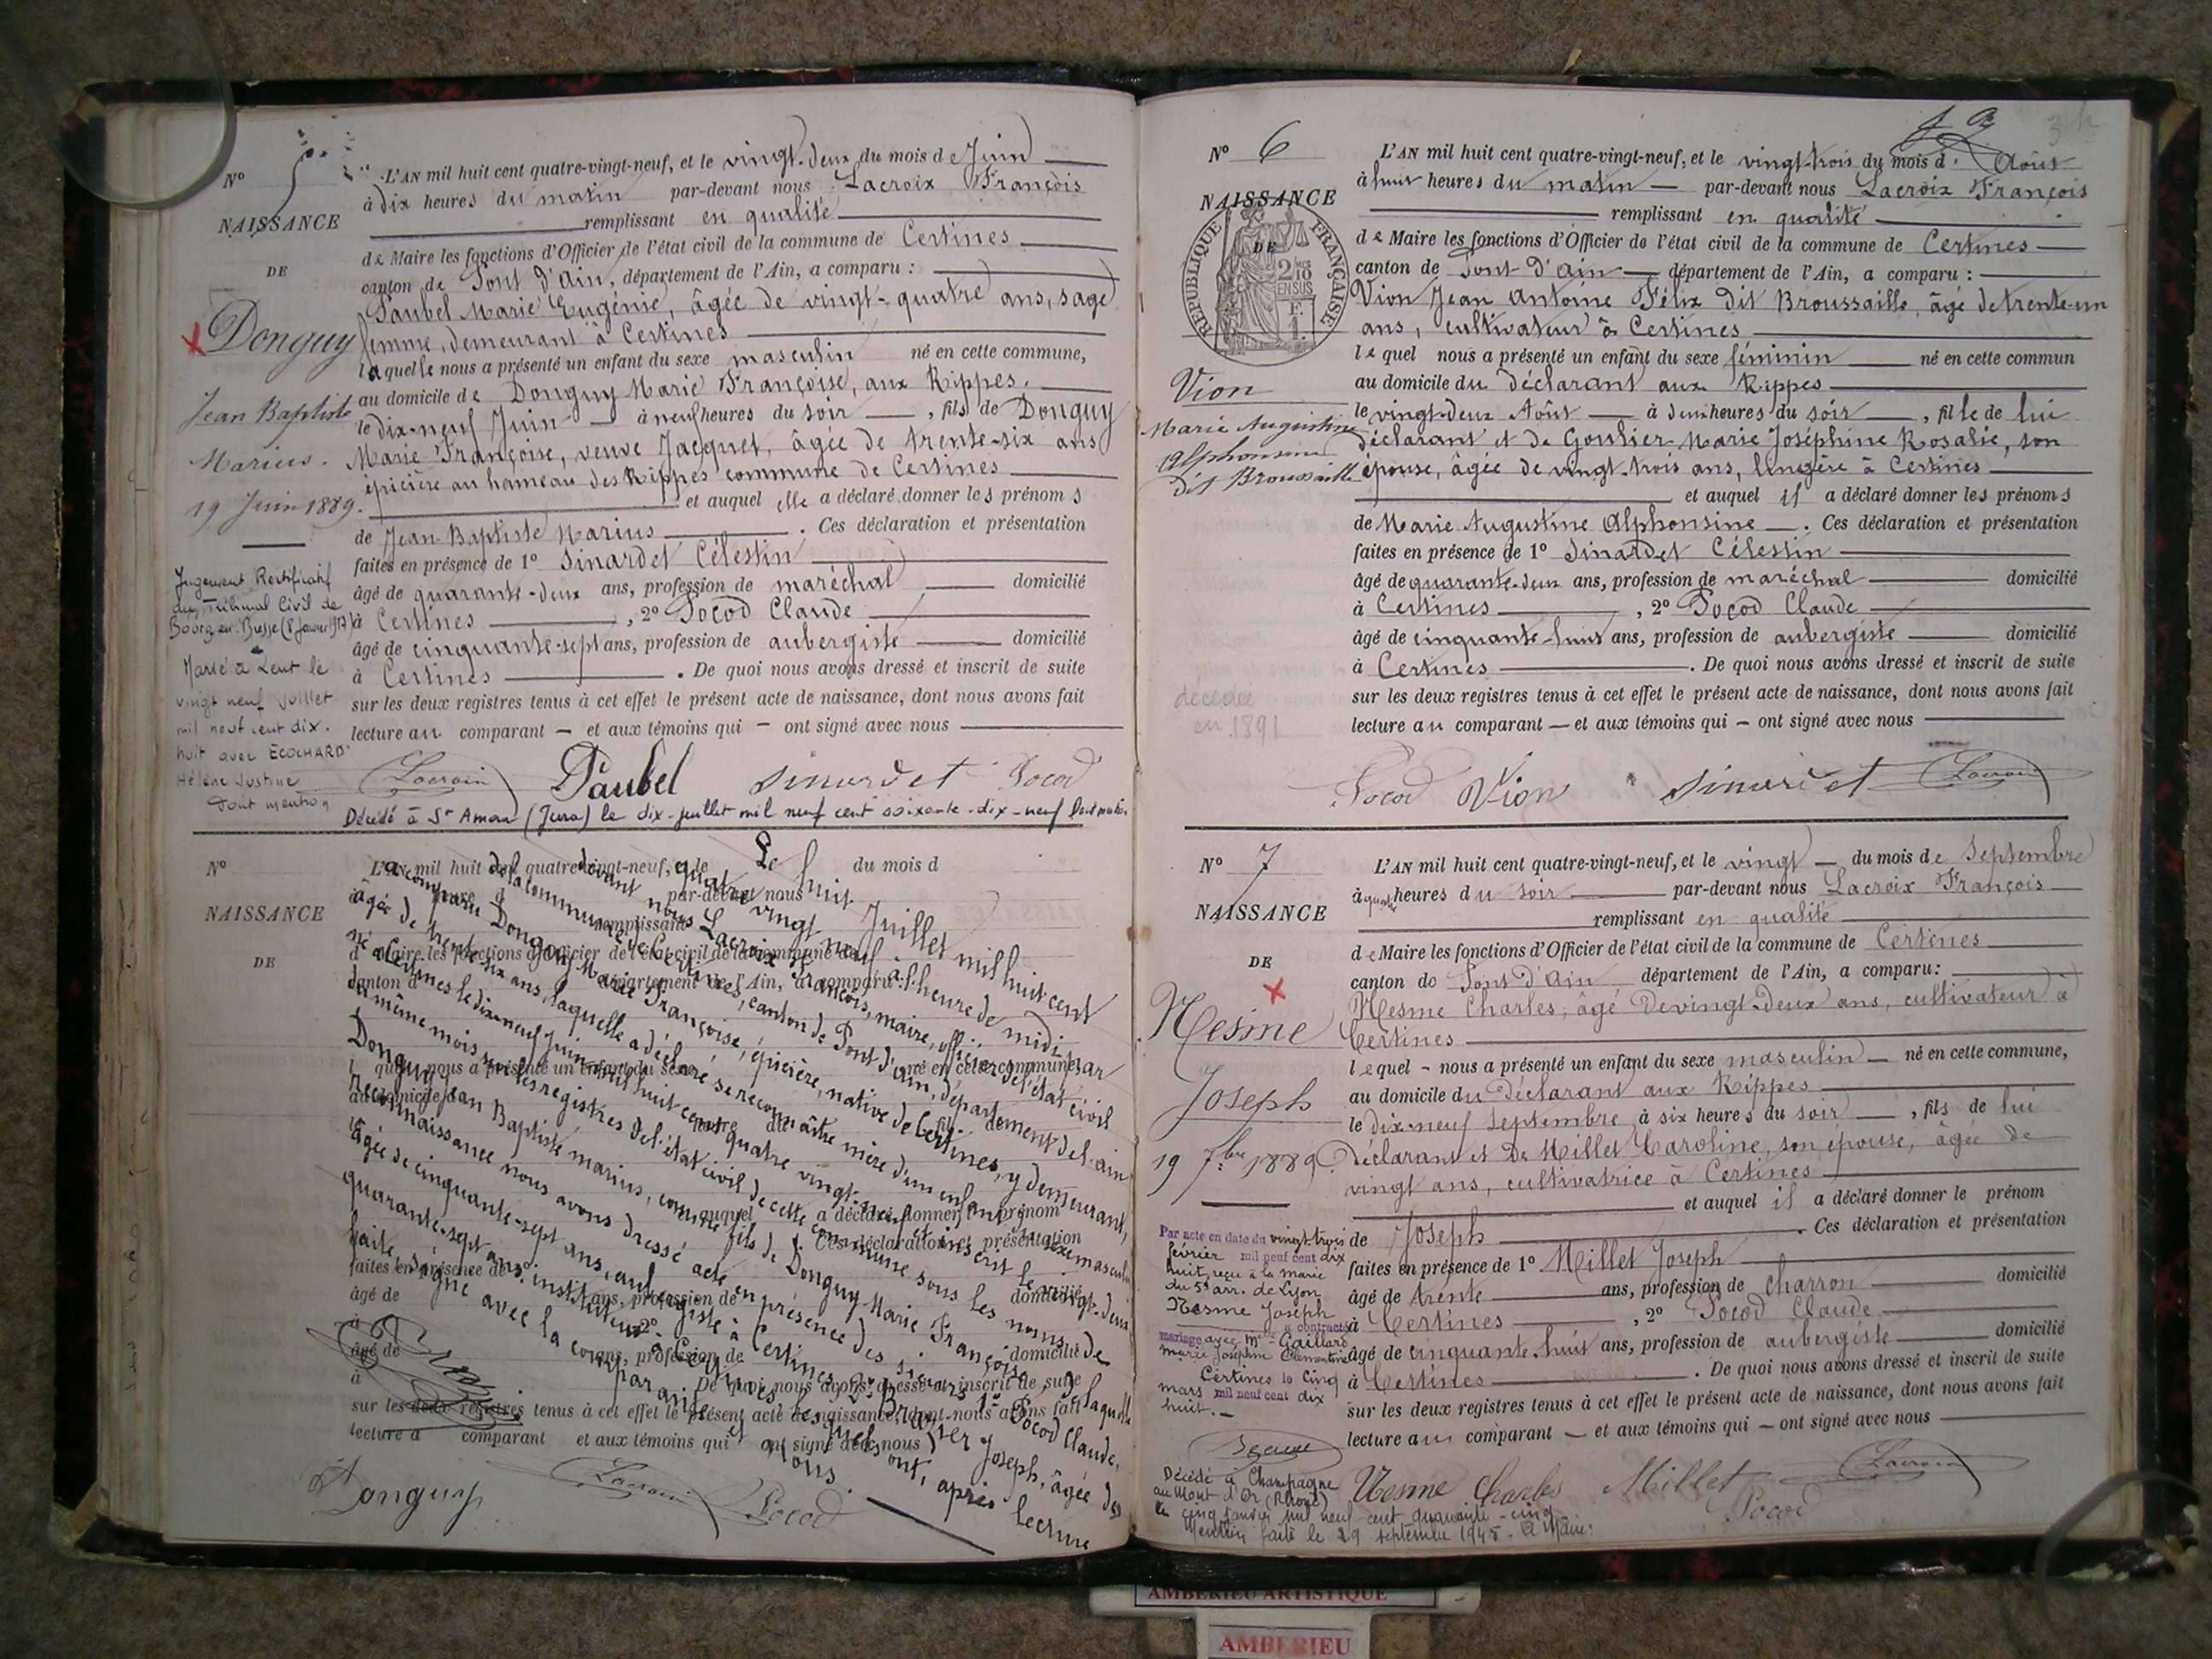 N° 5
NAISSANCE
DE
Donguy
Jean Baptiste
Marius.
19 Juin 1889.
Jugement Rectificatif
du Tribunal Civil de
Bourg en Bresse (8 Janvier 1917)
Marié à Lent le
vingt neuf juillet
mil neuf cent dix-
huit avec ECOCHARD
Hélène Justine
Dont mention
L'AN mil huit cent quatre-vingt-neuf, et le vingt-deux du mois de Juin
à dix heures du matin par-devant nous Lacroix François
remplissant en qualité
de Maire les fonctions d'Officier de l'état civil de la commune de Certines
canton de Pont d'Ain, département de l'Ain, a comparu :
Paubel Marie Eugénie, âgée de vingt-quatre ans, sage
femme, demeurant à Certines
laquelle nous a présenté un enfant du sexe masculin né en cette commune,
au domicile de Donguy Marie Françoise, aux Rippes.
le dix-neuf Juin à neuf heures du soir, fils de Donguy
Marie Françoise, veuve Jacquet, âgée de trente-six ans
épicière au hameau des Rippes commune de Certines
et auquel elle a déclaré donner les prénoms
de Jean Baptiste Marius. Ces déclaration et présentation
faites en présence de 1° Sinardet Célestin
âgé de quarante-deux ans, profession de maréchal domicilié
à Certines, 2° Pocod Claude
âgé de cinquante-sept ans, profession de aubergiste domicilié
à Certines. De quoi nous avons dressé et inscrit de suite
sur les deux registres tenus à cet effet le présent acte de naissance, dont nous avons fait
lecture au comparant – et aux témoins qui – ont signé avec nous
Lacroix Paubel Sinardet Pocod
Décédé à St Amour (Jura) le dix-juillet mil neuf cent soixante-dix-neuf
N°
NAISSANCE
DE
L'AN mil huit cent quatre-vingt-neuf, et le du mois d
par-devant nous
remplissant
d Maire les fonctions d'Officier de l'état civil de la commune de
canton d département de l'Ain, a comparu :
l quel nous a présenté un enfant du sexe né en cette commune,
au domicile d
le heure du , fil de
et auquel a déclaré donner le prénom
Ces déclaration et présentation
faites en présence de 1°
âgé de ans, profession de domicilié
à 2°
âgé de ans, profession de domicilié
à De quoi nous avons dressé et inscrit de suite
sur les deux registres tenus à cet effet le présent acte de naissance, dont nous avons fait
lecture a comparant et aux témoins qui ont signé avec nous
Le huit Juillet mil huit cent
quatre vingt neuf à l'heure de midi par
devant nous Lacroix François, maire, officier de l'état civil
de la commune de Certines, canton de Pont d'ain, département de l'ain
a comparu Donguy Marie Françoise, épicière, native de Certines, y demeurant,
âgée de trente-six ans, laquelle a déclaré se reconnaître mère d'un enfant du sexe masculin
né à Certines le dix-neuf Juin mil huit cent quatre vingt-neuf et inscrit le vingt-deux
du même mois sur les registres de l'état civil de cette commune sous les noms de
Donguy Jean Baptiste marius, comme fils de Donguy Marie Françoise, de laquelle
reconnaissance nous avons dressé acte en présence des sieurs 1° Pocod Claude,
âgée de cinquante-sept ans, aubergiste à Certines, 2° Brazier Joseph, âgée de
quarante-sept ans, instituteur à Certines, lesquels ont, après lecture
faite, signé avec la comparante et nous
Donguy Lacroix Pocod
N° 6
NAISSANCE
DE
RÉPUBLIQUE FRANÇAISE
2/10 EN SUS
Vion
Marie Augustine
Alphonsine
dit Broussaille
décédée
en 1891
L'AN mil huit cent quatre-vingt-neuf, et le vingt-trois du mois d' Août
à huit heures du matin – par-devant nous Lacroix François
remplissant en qualité
de Maire les fonctions d'Officier de l'état civil de la commune de Certines
canton de Pont d'Ain département de l'Ain, a comparu :
Vion Jean Antoine Félix dit Broussaille, âgé de trente-un
ans, cultivateur à Certines
lequel nous a présenté un enfant du sexe féminin né en cette commun
au domicile du déclarant aux Rippes
le vingt-deux Août à deux heures du soir, fille de lui
déclarant et de Goulier Marie Joséphine Rosalie, son
épouse, âgée de vingt-trois ans, lingère à Certines
et auquel il a déclaré donner les prénoms
de Marie Augustine Alphonsine. Ces déclaration et présentation
faites en présence de 1° Sinardet Célestin
âgé de quarante-deux ans, profession de maréchal domicilié
à Certines, 2° Pocod Claude
âgé de cinquante-huit ans, profession de aubergiste domicilié
à Certines. De quoi nous avons dressé et inscrit de suite
sur les deux registres tenus à cet effet le présent acte de naissance, dont nous avons fait
lecture au comparant – et aux témoins qui – ont signé avec nous
Pocod Vion Sinardet Lacroix
N° 7
NAISSANCE
DE
Mesme
Joseph
19 7bre 1889.
Par acte en date du vingt-trois
février mil neuf cent dix
huit, reçu à la mairie
du 5e arr. de Lyon
Mesme Joseph
a contracté
mariage avec Mlle Gaillard
Marie Joséphine Clémentine
Certines le cinq
mars mil neuf cent dix
huit.
Décédé à Champagne
au Mont d'Or (Rhône)
le cinq janvier mil neuf cent quarante-cinq
Mention faite le 29 septembre 1945. Le Maire:
L'AN mil huit cent quatre-vingt-neuf, et le vingt – du mois de Septembre
à quatre heures du soir par-devant nous Lacroix François
remplissant en qualité
de Maire les fonctions d'Officier de l'état civil de la commune de Certines
canton de Pont d'Ain département de l'Ain, a comparu :
Mesme Charles, âgé de vingt-deux ans, cultivateur à
Certines
lequel – nous a présenté un enfant du sexe masculin – né en cette commune,
au domicile du déclarant aux Rippes
le dix-neuf Septembre à six heures du soir, fils de lui
déclarant et De Millet Caroline, son épouse, âgée de
vingt ans, cultivatrice à Certines
et auquel il a déclaré donner le prénom
de Joseph. Ces déclaration et présentation
faites en présence de 1° Millet Joseph
âgé de trente ans, profession de charron domicilié
à Certines, 2° Pocod Claude
âgé de cinquante-huit ans, profession de aubergiste domicilié
à Certines. De quoi nous avons dressé et inscrit de suite
sur les deux registres tenus à cet effet le présent acte de naissance, dont nous avons fait
lecture au comparant – et aux témoins qui – ont signé avec nous
Mesme Charles Millet Lacroix
Pocod
AMBERIEU ARTISTIQUE
AMBERIEU